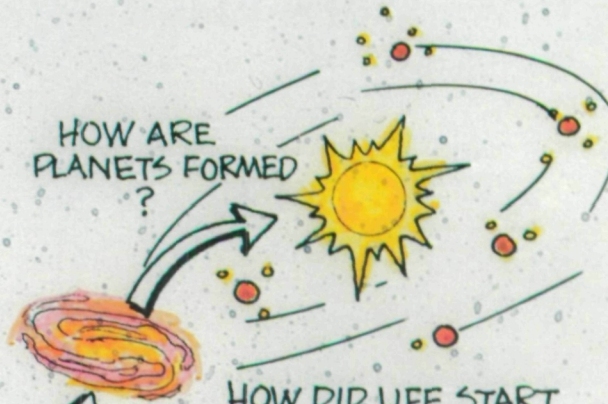 HOW ARE
PLANETS FORMED
?
HOW DID LIFE START